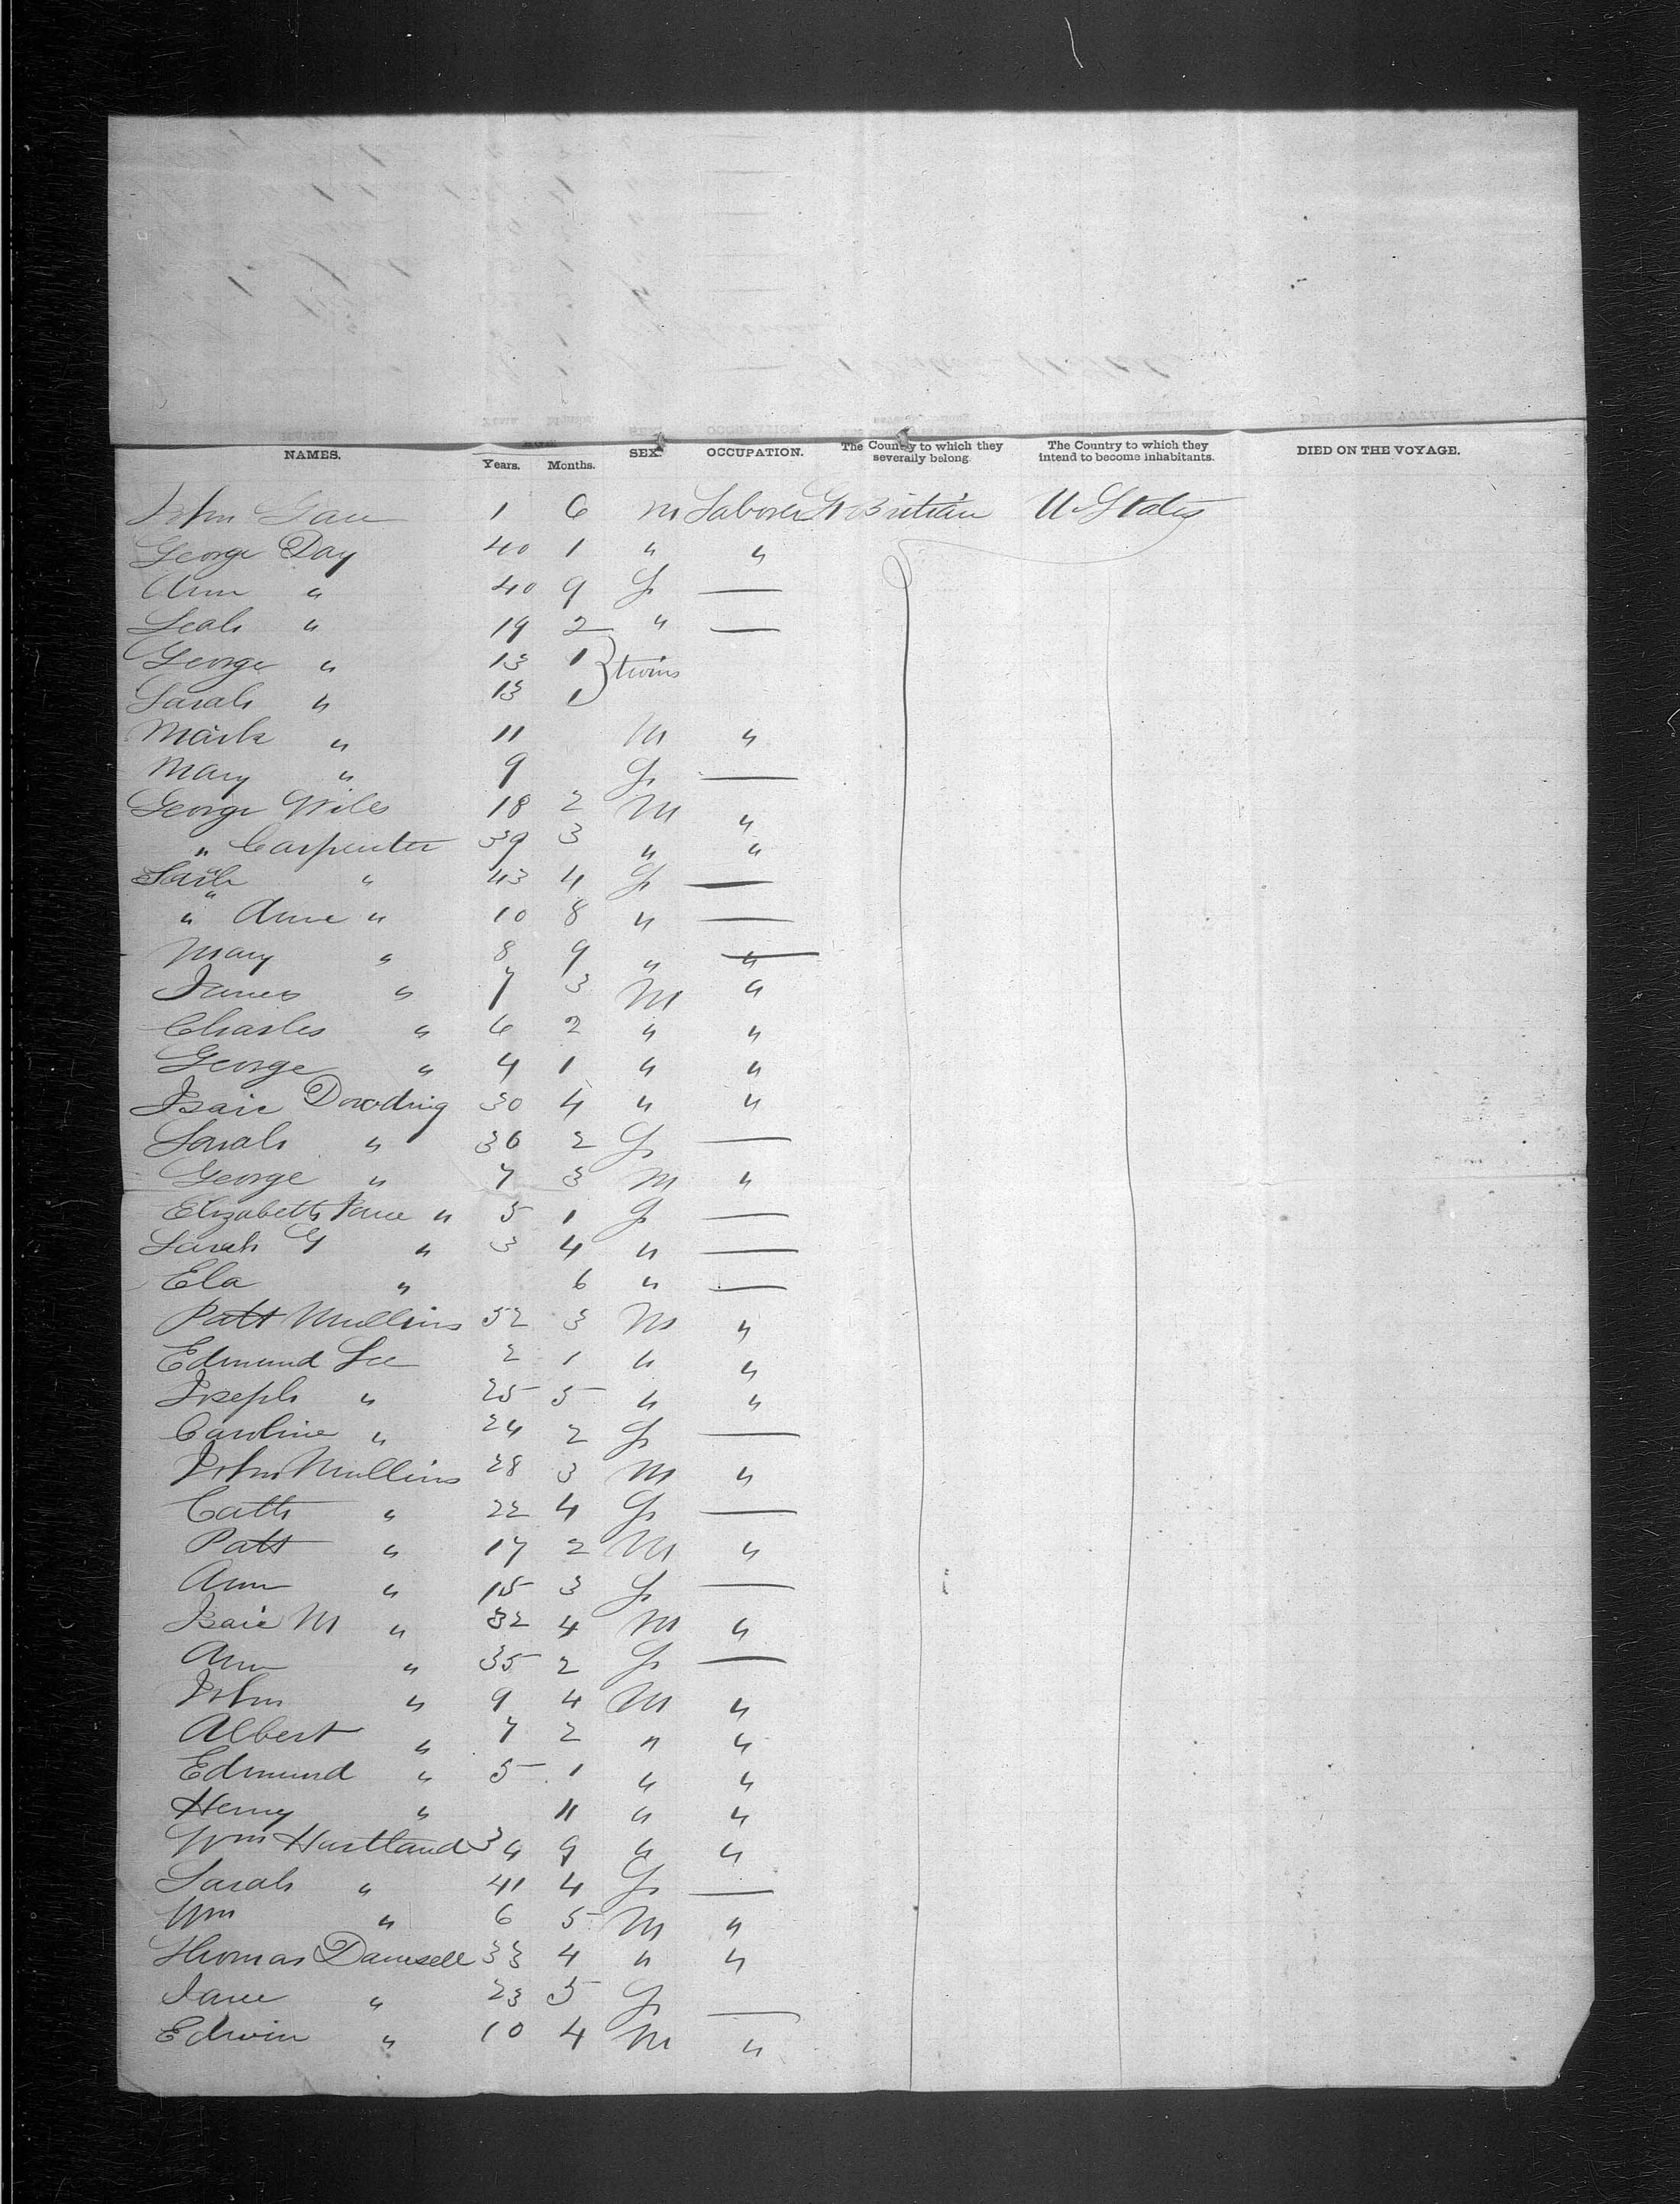 NAMES. Years. Months. SEX. OCCUPATION. The Country to which they severally belong. The Country to which they intend to become inhabitants. DIED ON THE VOYAGE.
John 1 6 m Laborer Gt Britian U States
George Day 40 1 " "
Ann " 40 9 F —
Leah " 19 2 " —
George " 13 1 } twins
Sarah " 13 1
Mark " 11 M "
Mary " 9 F —
George Wiles 18 2 M "
" Carpenter 39 3 " "
Sarh " 43 4 F —
" Anne " 10 8 " —
Mary " 8 9 " "
James " 7 3 M "
Charles " 6 2 " "
George " 4 1 " "
Isaic Dowding 30 4 " "
Sarah " 36 2 F —
George " 7 3 M "
Elizabeth Jane " 5 1 F —
Sarah G " 3 4 " —
Ela " 6 " —
Patt Mullins 52 3 M "
Edmund Lee 2 1 " "
Joseph " 25 5 " "
Caroline " 24 2 F —
John Mullins 28 3 M "
Cath " 22 4 F —
Patt " 17 2 M "
Ann " 15 3 F —
Isaic M " 32 4 M "
Ann " 35 2 F —
John " 9 4 M "
Albert " 7 2 " "
Edmund " 5 1 " "
Henry " 11 " "
Wm Hartland 39 9 " "
Sarah " 41 4 F —
Wm " 6 5 M "
Thomas Damsell 33 4 " "
Jane " 23 5 F —
Edwin " 10 4 M "